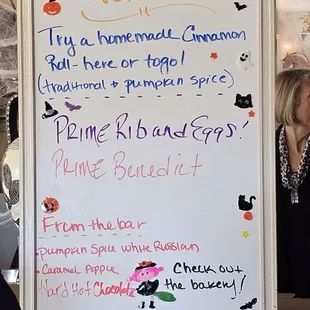 Try a homemade Cinnamon
Roll - here or togo!
(traditional + pumpkin spice)
PRIME RIB and EGGS!
PRIME Benedict
From the bar
• Pumpkin Spice White Russian
• Caramel Apple
• Hard Hot Chocolate
Check out
the bakery!